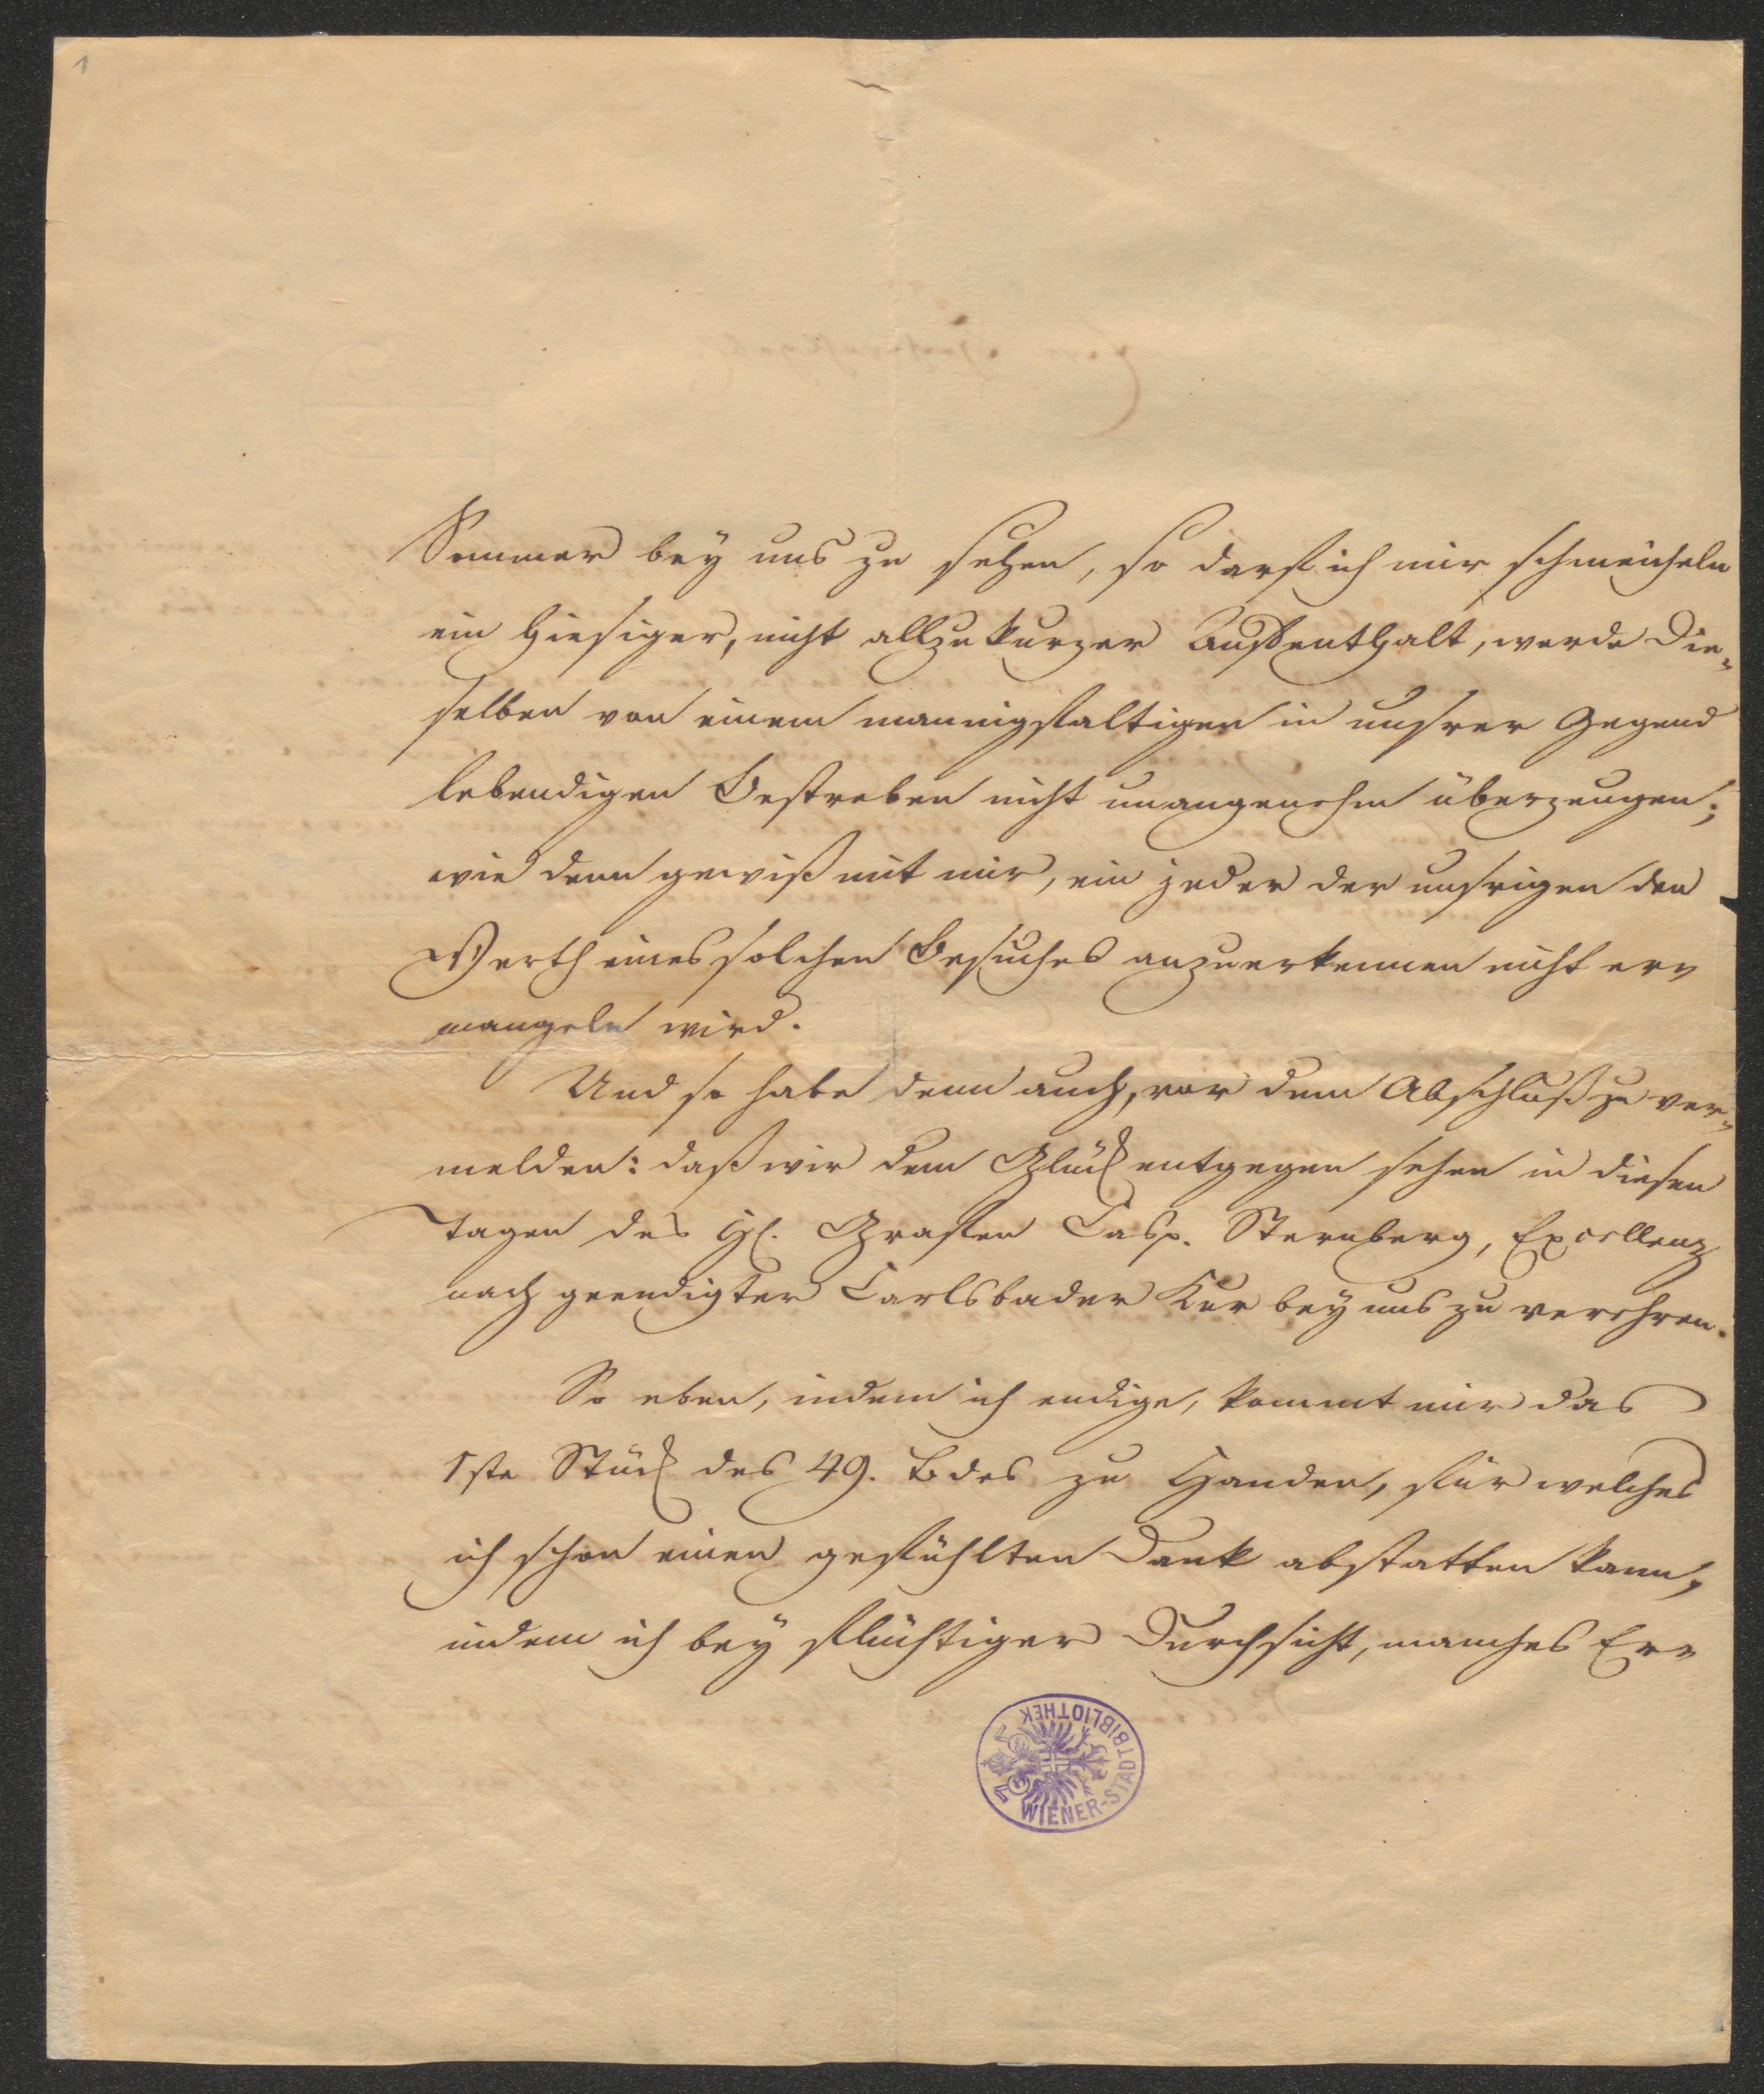 1
Sommer bey uns zu sehen, so darf ich mir schmeicheln
ein hiesiger, nicht allzukurzer Aufenthalt, werde Die=
selben von einem mannigfaltigen in unsrer Gegend
lebendigen Bestreben nicht unangenehm überzeugen;
wie denn gewiß mit mir, ein jeder der unsrigen den
Werth eines solchen Besuches anzuerkennen nicht er=
mangeln wird.
Und so habe denn auch, vor dem Abschluß zu ver=
melden: daß wir dem Glück entgegen sehen in diesen
Tagen des H. Grafen Casp. Sternberg, Excellenz
nach geendigter Carlsbader Kur bey uns zu verehren.
So eben, indem ich endige, kommt mir das
1ste Stück des 49. Bdes zu Handen, für welches
ich schon einen gefühlten Dank abstatten kann,
indem ich bey flüchtiger Durchsicht, manches Er=
WIENER-STADTBIBLIOTHEK